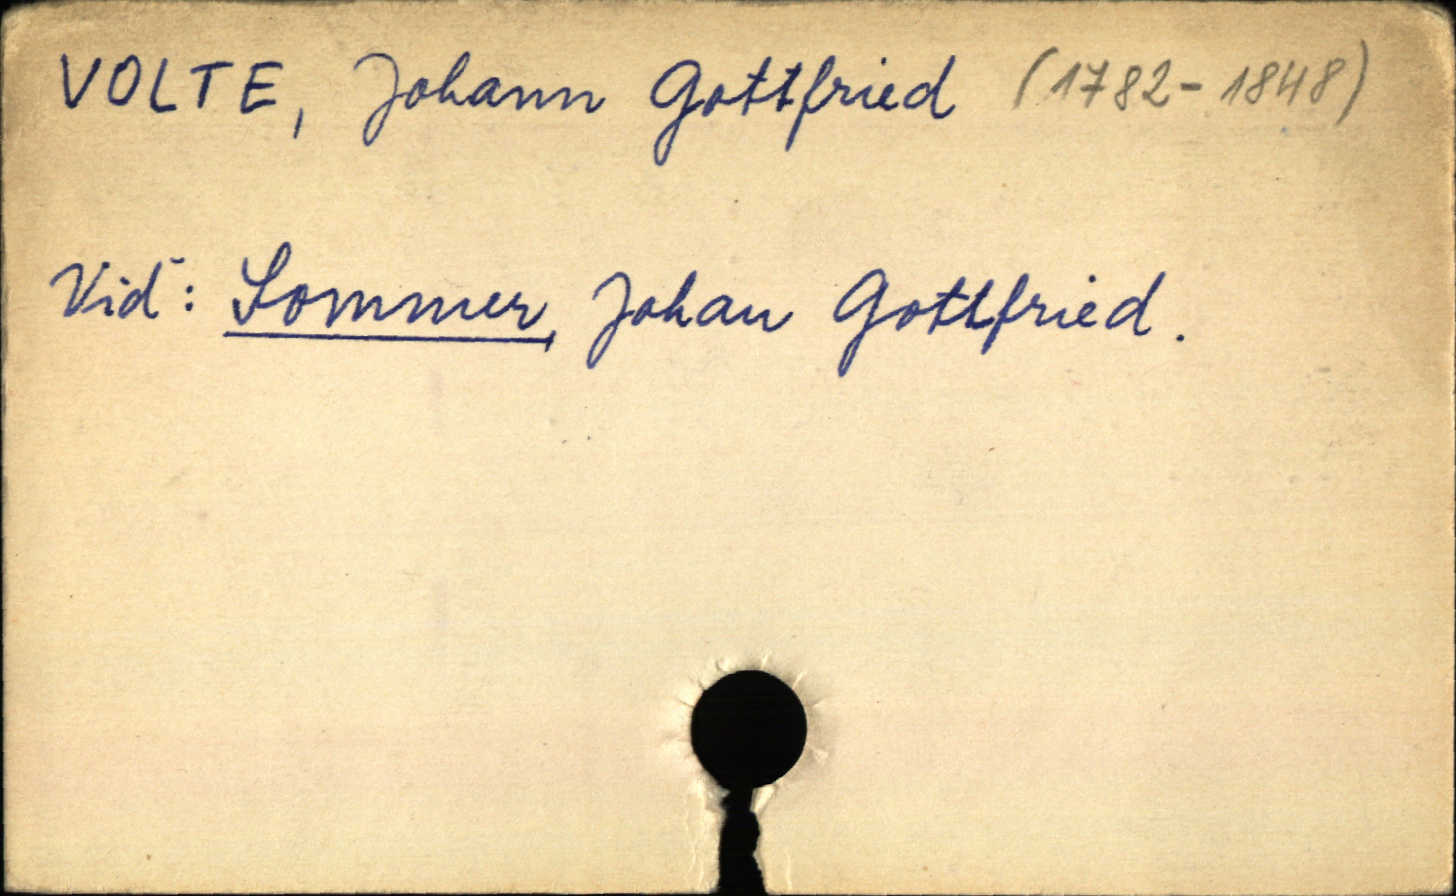 VOLTE, Johann Gottfried (1782-1848)
Vid: Sommer, Johan Gottfried.